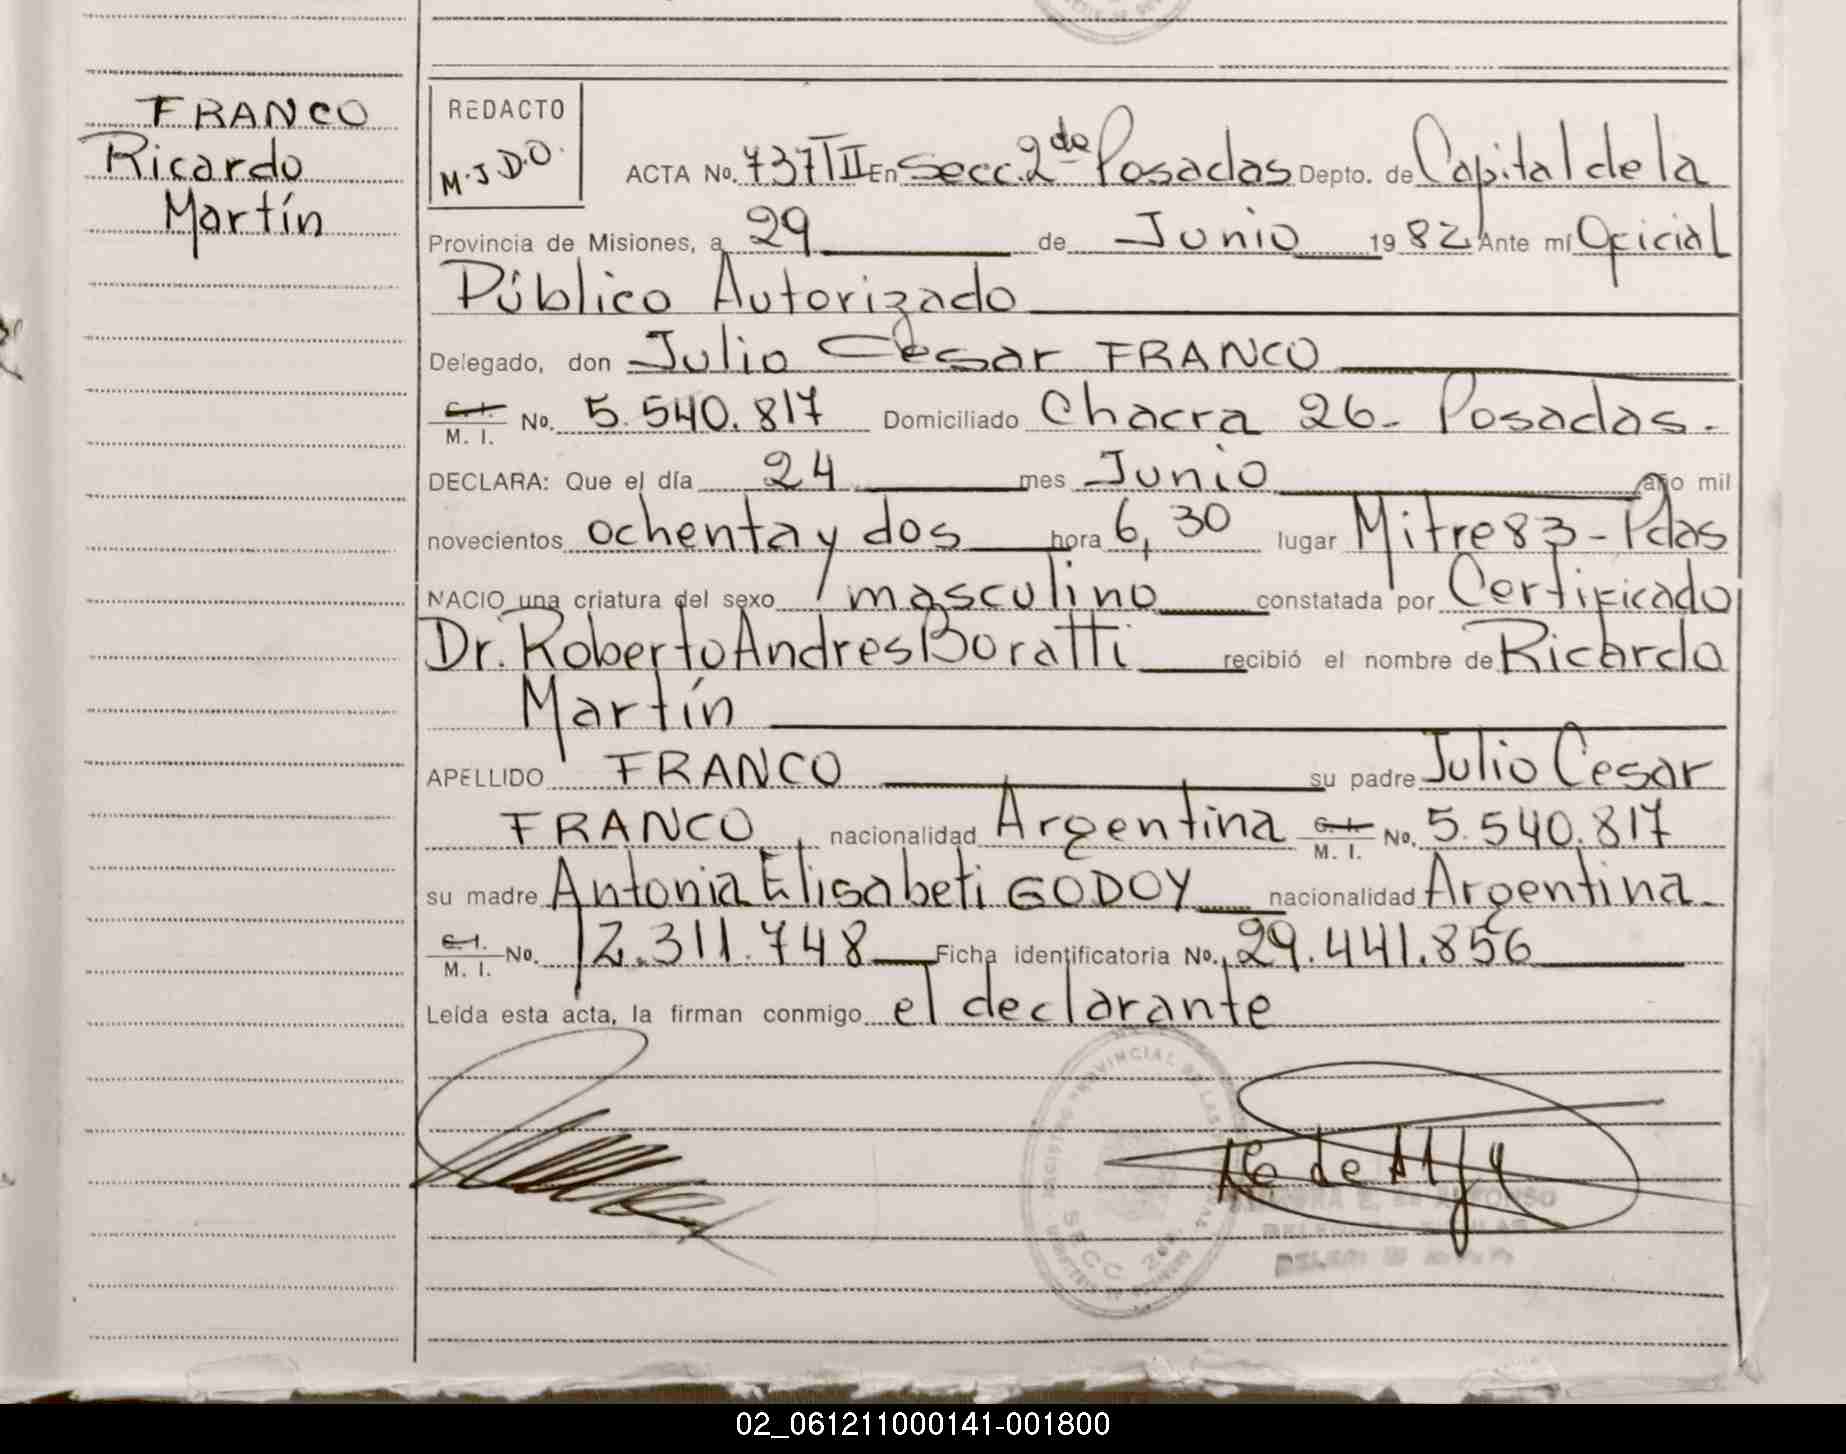 FRANCO
Ricardo
Martín
REDACTO
M.J.D.O.
ACTA No. 737TII En Secc. 2da Posadas Depto. de Capital de la
Provincia de Misiones, a 29 de Junio 1982 Ante mí Oficial
Público Autorizado
Delegado, don Julio Cesar FRANCO
C. I. / M. I. No. 5.540.817 Domiciliado Chacra 26- Posadas.-
DECLARA: Que el día 24 mes Junio año mil
novecientos ochenta y dos hora 6,30 lugar Mitre 83 - Pdas
NACIO una criatura del sexo masculino constatada por Certificado
Dr. Roberto Andres Boratti recibió el nombre de Ricardo
Martín
APELLIDO FRANCO su padre Julio Cesar
FRANCO, nacionalidad Argentina C. I. / M. I. No. 5.540.817
su madre Antonia Elisabeti GODOY nacionalidad Argentina
C. I. / M. I. No. 12.311.748 Ficha identificatoria No. 29.441.856
Leída esta acta, la firman conmigo el declarante
REGISTRO PROVINCIAL DE LAS
SECC 2da.
02_061211000141-001800